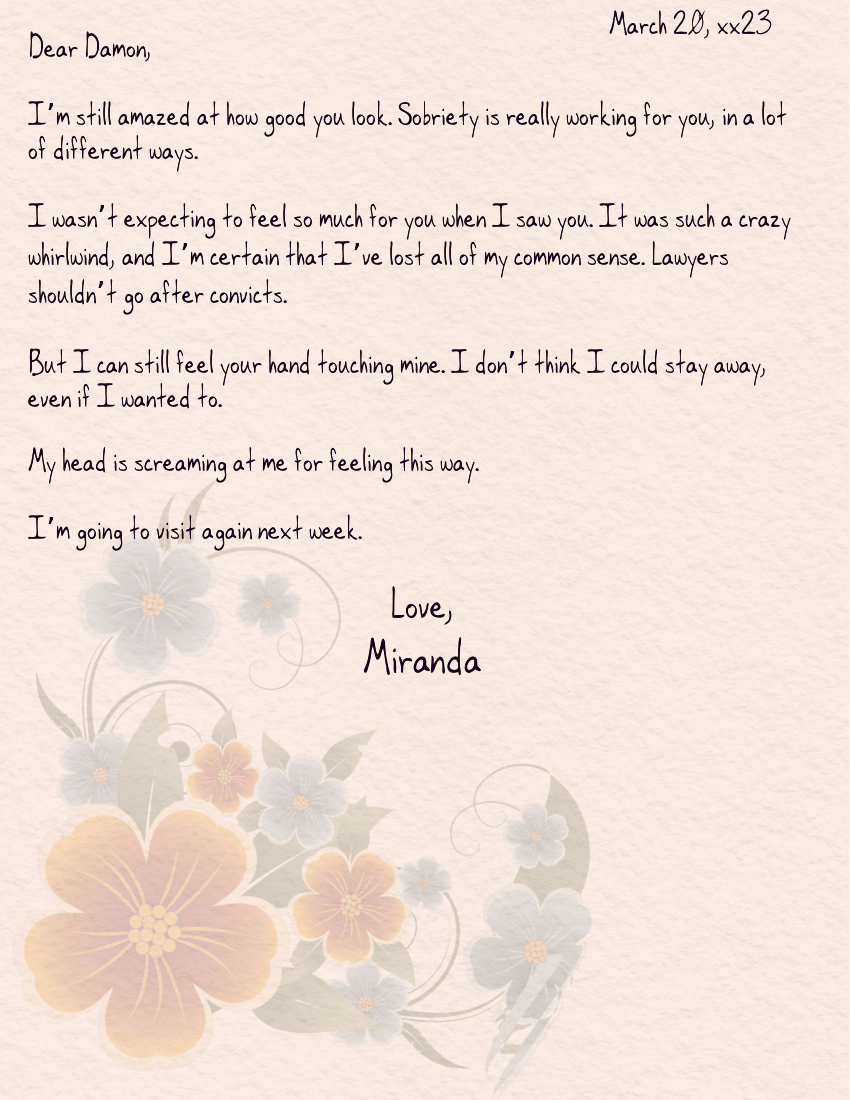 March 20, xx23
Dear Damon,
I'm still amazed at how good you look. Sobriety is really working for you, in a lot
of different ways.
I wasn't expecting to feel so much for you when I saw you. It was such a crazy
whirlwind, and I'm certain that I've lost all of my common sense. Lawyers
shouldn't go after convicts.
But I can still feel your hand touching mine. I don't think I could stay away,
even if I wanted to.
My head is screaming at me for feeling this way.
I'm going to visit again next week.
Love,
Miranda